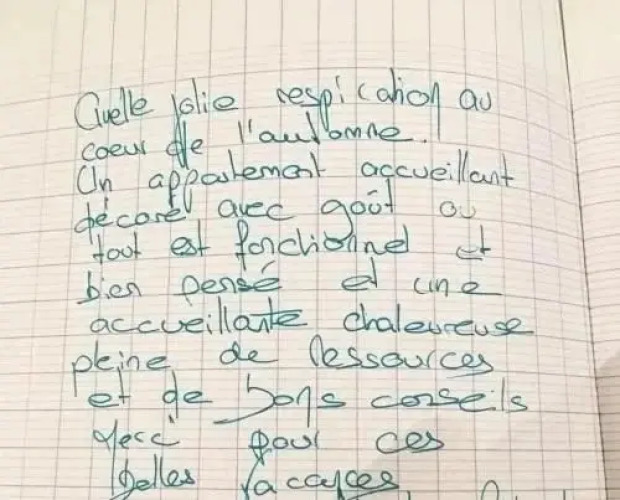 Quelle jolie respiration au
coeur de l'automne.
Un appartement accueillant
décoré avec goût où
tout est fonctionnel et
bien pensé et une
accueillante chaleureuse
pleine de ressources
et de bons conseils
Merci pour ces
belles vacances